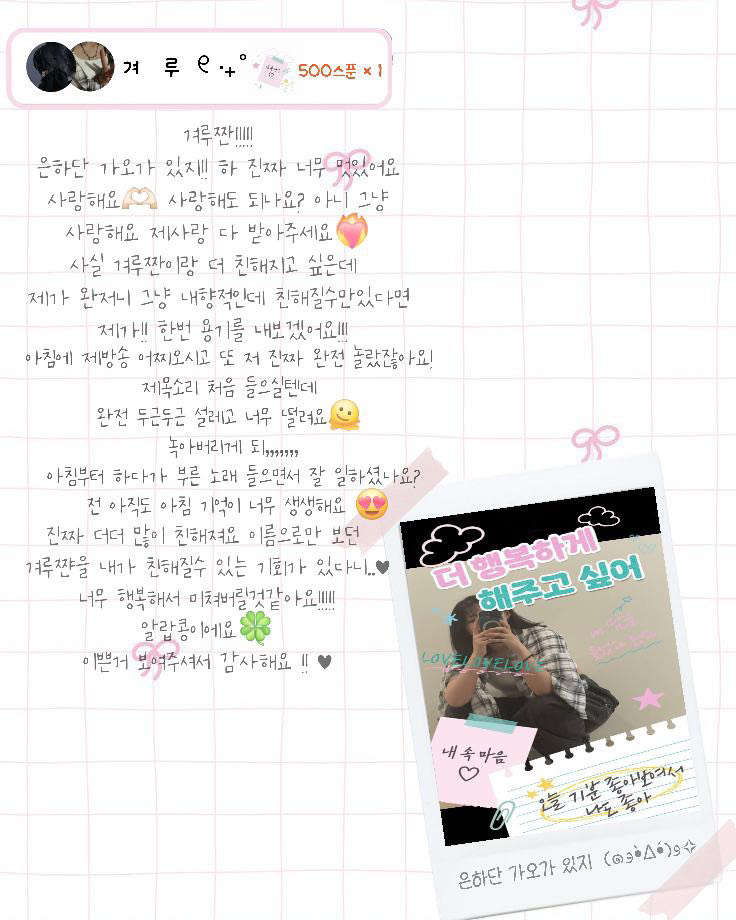 겨 루 ୧ ‧₊˚ 500스푼 × 1
겨루짠!!!!!
은하단 가오가 있지!! 하 진짜 너무 멋있어요
사랑해요🫶🏻 사랑해도 되나요? 아니 그냥
사랑해요 제사랑 다 받아주세요❤️‍🔥
사실 겨루짠이랑 더 친해지고 싶은데
제가 완저니 그냥 내향적인데 친해질수만있다면
제가!! 한번 용기를 내보겠어요!!!
아침에 제방송 어찌오시고 또 저 진짜 완전 놀랐잖아요!
제목소리 처음 들으실텐데
완전 두근두근 설레고 너무 떨려요🫠
녹아버리게 되,,,,,,,
아침부터 하다가 부른 노래 들으면서 잘 일하셨나요?
전 아직도 아침 기억이 너무 생생해요 😍
진짜 더더 많이 친해져요 이름으로만 보던
겨루쨘을 내가 친해질수 있는 기회가 있다니..♥
너무 행복해서 미쳐버릴것같아요!!!!!
알랍콩이에요🍀
이쁜거 보여주셔서 감사해요 !! ♥
더 행복하게
해주고 싶어
LOVELOVELOVE
내 속 마음
♡
오늘 기분 좋아보여서
나도 좋아
은하단 가오가 있지 (๑و•̀Δ•́)و✧